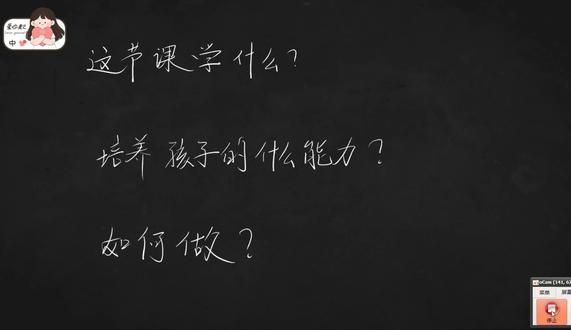 这节课学什么?
培养孩子的什么能力?
如何做?
中
oCam (141, 6
菜单 屏幕
停止